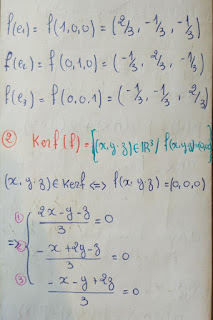 f(e₁) = f(1,0,0) = (2/3, -1/3, -1/3)
f(e₂) = f(0,1,0) = (-1/3, 2/3, -1/3)
f(e₃) = f(0,0.1) = (-1/3, -1/3, 2/3)
② Kerf(f) = {(x,y,z) ∈ ℝ³ / f(x,y,z)=(0,0,0)}
(x,y,z) ∈ Kerf ⟺ f(x,y,z) = (0,0,0)
① (2x-y-z)/3 = 0
⟹ ② (-x+2y-z)/3 = 0
③ (-x-y+2z)/3 = 0